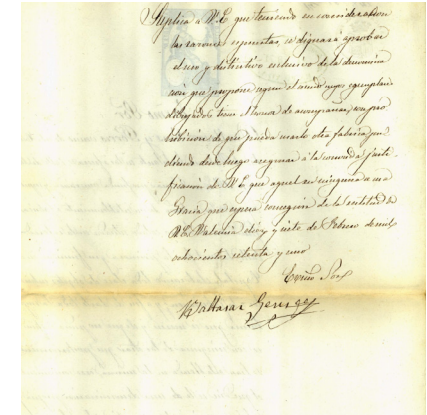 Suplica a V.E. que teniendo en consideración
las razones expuestas, se dignará aprobar
el uso y distintivo exclusivo de la denomina
ción que propone segun el modo cuyos ejemplares
dibujados tiene el honor de acompañar, con pro
hibicion de que pueda usarlo otra fabrica pu
diendo desde luego asegurar á la conocida justi-
ficación de V.E. que aquel su ninguna a una
Gracia que espera conseguir de la rectitud de
V.E. Valencia diez y siete de Febrero de mil
ochocientos setenta y uno
Exmo Sor